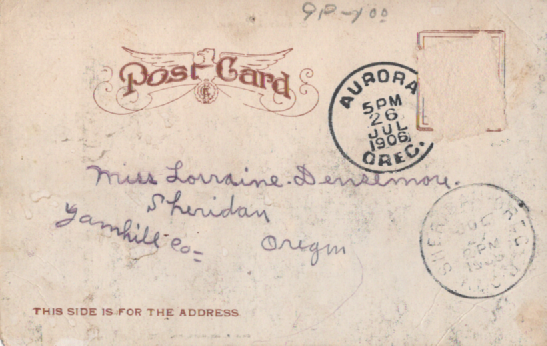 9P-100
Post Card
AURORA
5PM
26
JUL
1906
OREG.
Miss Lorraine Densemore.
Sheridan
Yamhill Co=
Oregon
SHERIDAN OREG.
JUL
PM
1906
THIS SIDE IS FOR THE ADDRESS.